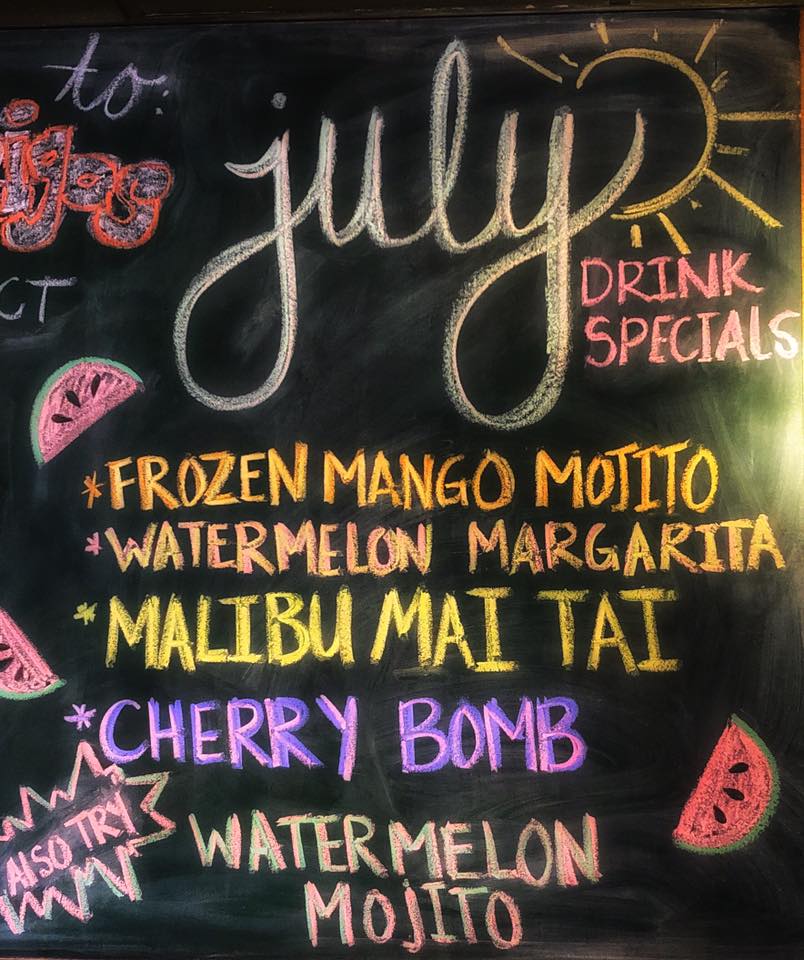 to:
july
DRINK
SPECIALS
CT
*FROZEN MANGO MOJITO
*WATERMELON MARGARITA
*MALIBU MAI TAI
*CHERRY BOMB
ALSO TRY
WATERMELON
MOJITO